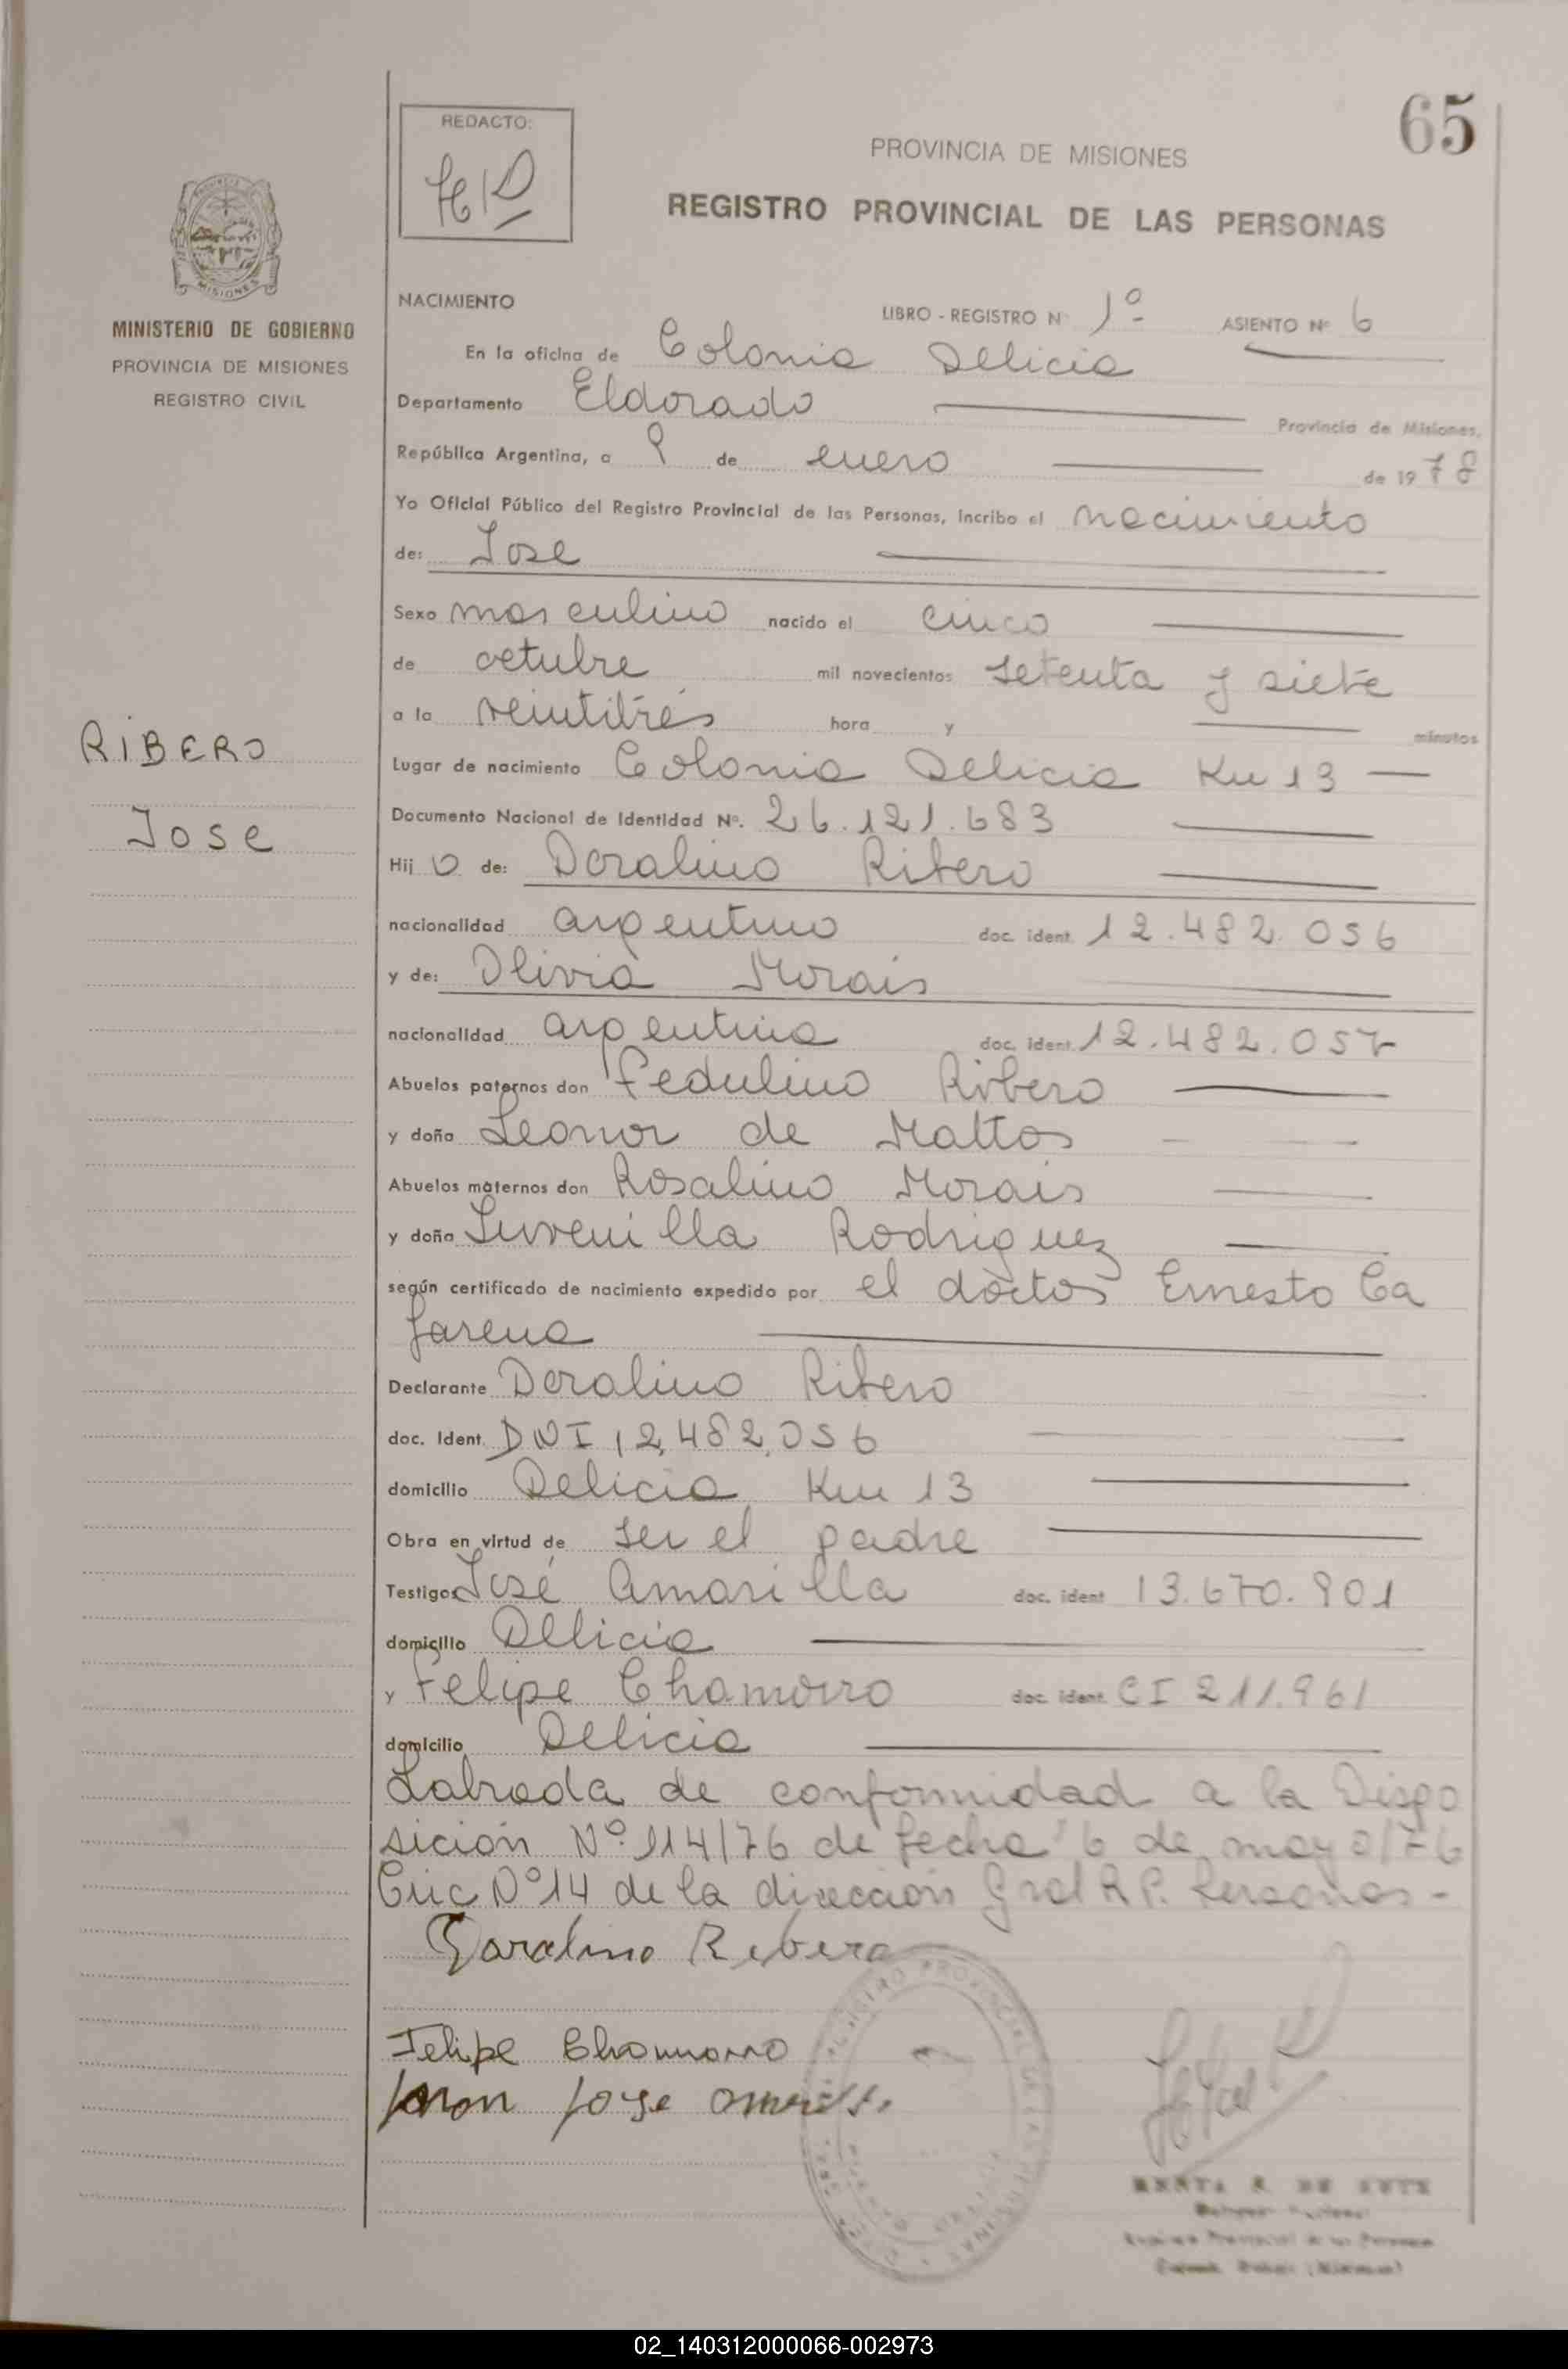 65
REDACTO:
PROVINCIA DE MISIONES
REGISTRO PROVINCIAL DE LAS PERSONAS
MISIONES
MINISTERIO DE GOBIERNO
PROVINCIA DE MISIONES
REGISTRO CIVIL
RIBERO
Jose
NACIMIENTO
LIBRO - REGISTRO N° 1º ASIENTO Nº 6
En la oficina de Colonia Delicia
Departamento Eldorado Provincia de Misiones,
República Argentina, a 9 de enero de 1978
Yo Oficial Público del Registro Provincial de las Personas, incribo el nacimiento
de: Jose
Sexo masculino nacido el cinco
de octubre mil novecientos setenta y siete
a la veintitrés hora y minutos
Lugar de nacimiento Colonia Delicia Km 13
Documento Nacional de Identidad Nº. 26.121.683
Hij o de: Doralino Ribero
nacionalidad argentino doc. ident. 12.482.056
y de: Olivia Morais
nacionalidad argentina doc. ident. 12.482.057
Abuelos paternos don Fedulino Ribero
y doña Leonor de Mattos
Abuelos maternos don Rosalino Morais
y doña Juvenilla Rodriguez
según certificado de nacimiento expedido por el doctor Ernesto Ca
farena
Declarante Doralino Ribero
doc. Ident. DNI 12.482.056
domicilio Delicia Km 13
Obra en virtud de ser el padre
Testigos José Amarilla doc. ident 13.670.901
domicilio Delicia
y Felipe Chamorro doc. ident. CI 211.961
domicilio Delicia
Labrada de conformidad a la Dispo
sición Nº 114/76 de fecha 6 de mayo/76
Circ Nº 14 de la dirección Gral R P. Personas -
Doralino Ribero
Felipe Chamorro
02_140312000066-002973